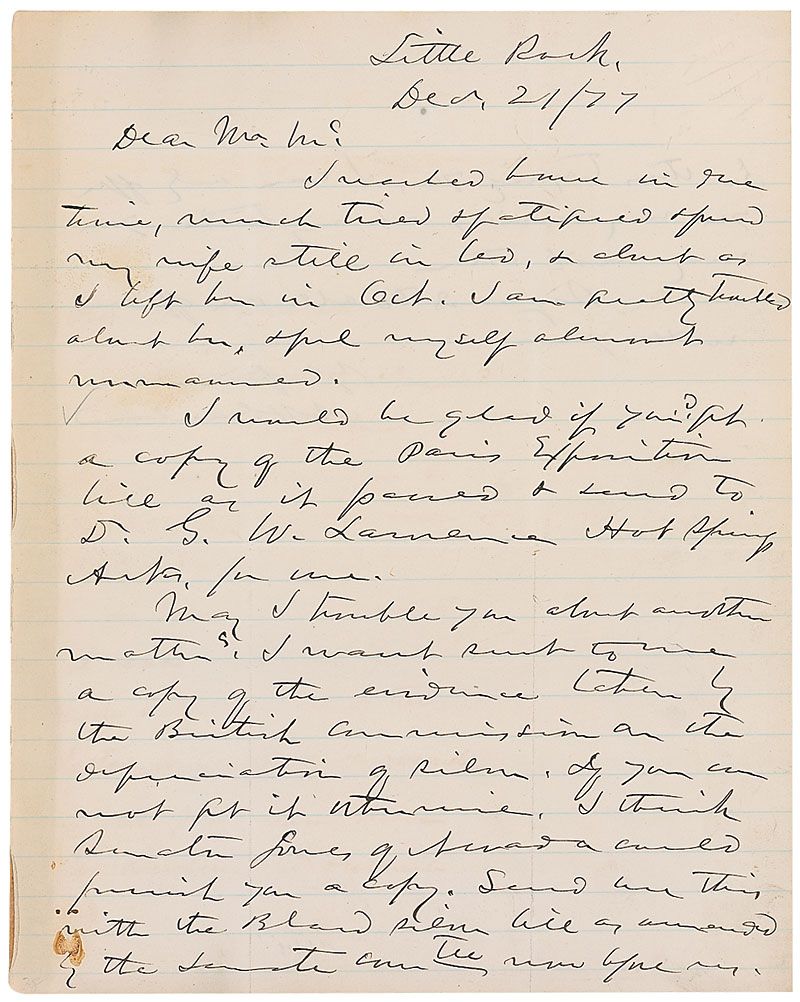 Little Rock,
Dec. 21/77
Dear Mr. Mc.
I reached home in due
time, much tired & fatigued & found
my wife still in bed, & about as
I left her in Oct. I am pretty troubled
about her, & feel myself almost
unmanned.
I would be glad if you'd get
a copy of the Paris Exposition
bill as it passed & send to
D. G. W. Lawrence Hot Springs
Arks, for me.
May I trouble you about another
matter? I want sent to me
a copy of the evidence taken by
the British Commission on the
depreciation of silver. If you can
not get it otherwise, I think
Senator Jones of Nevada could
furnish you a copy. Send me this
with the Bland silver bill as amended
by the Senate comtee now before us.